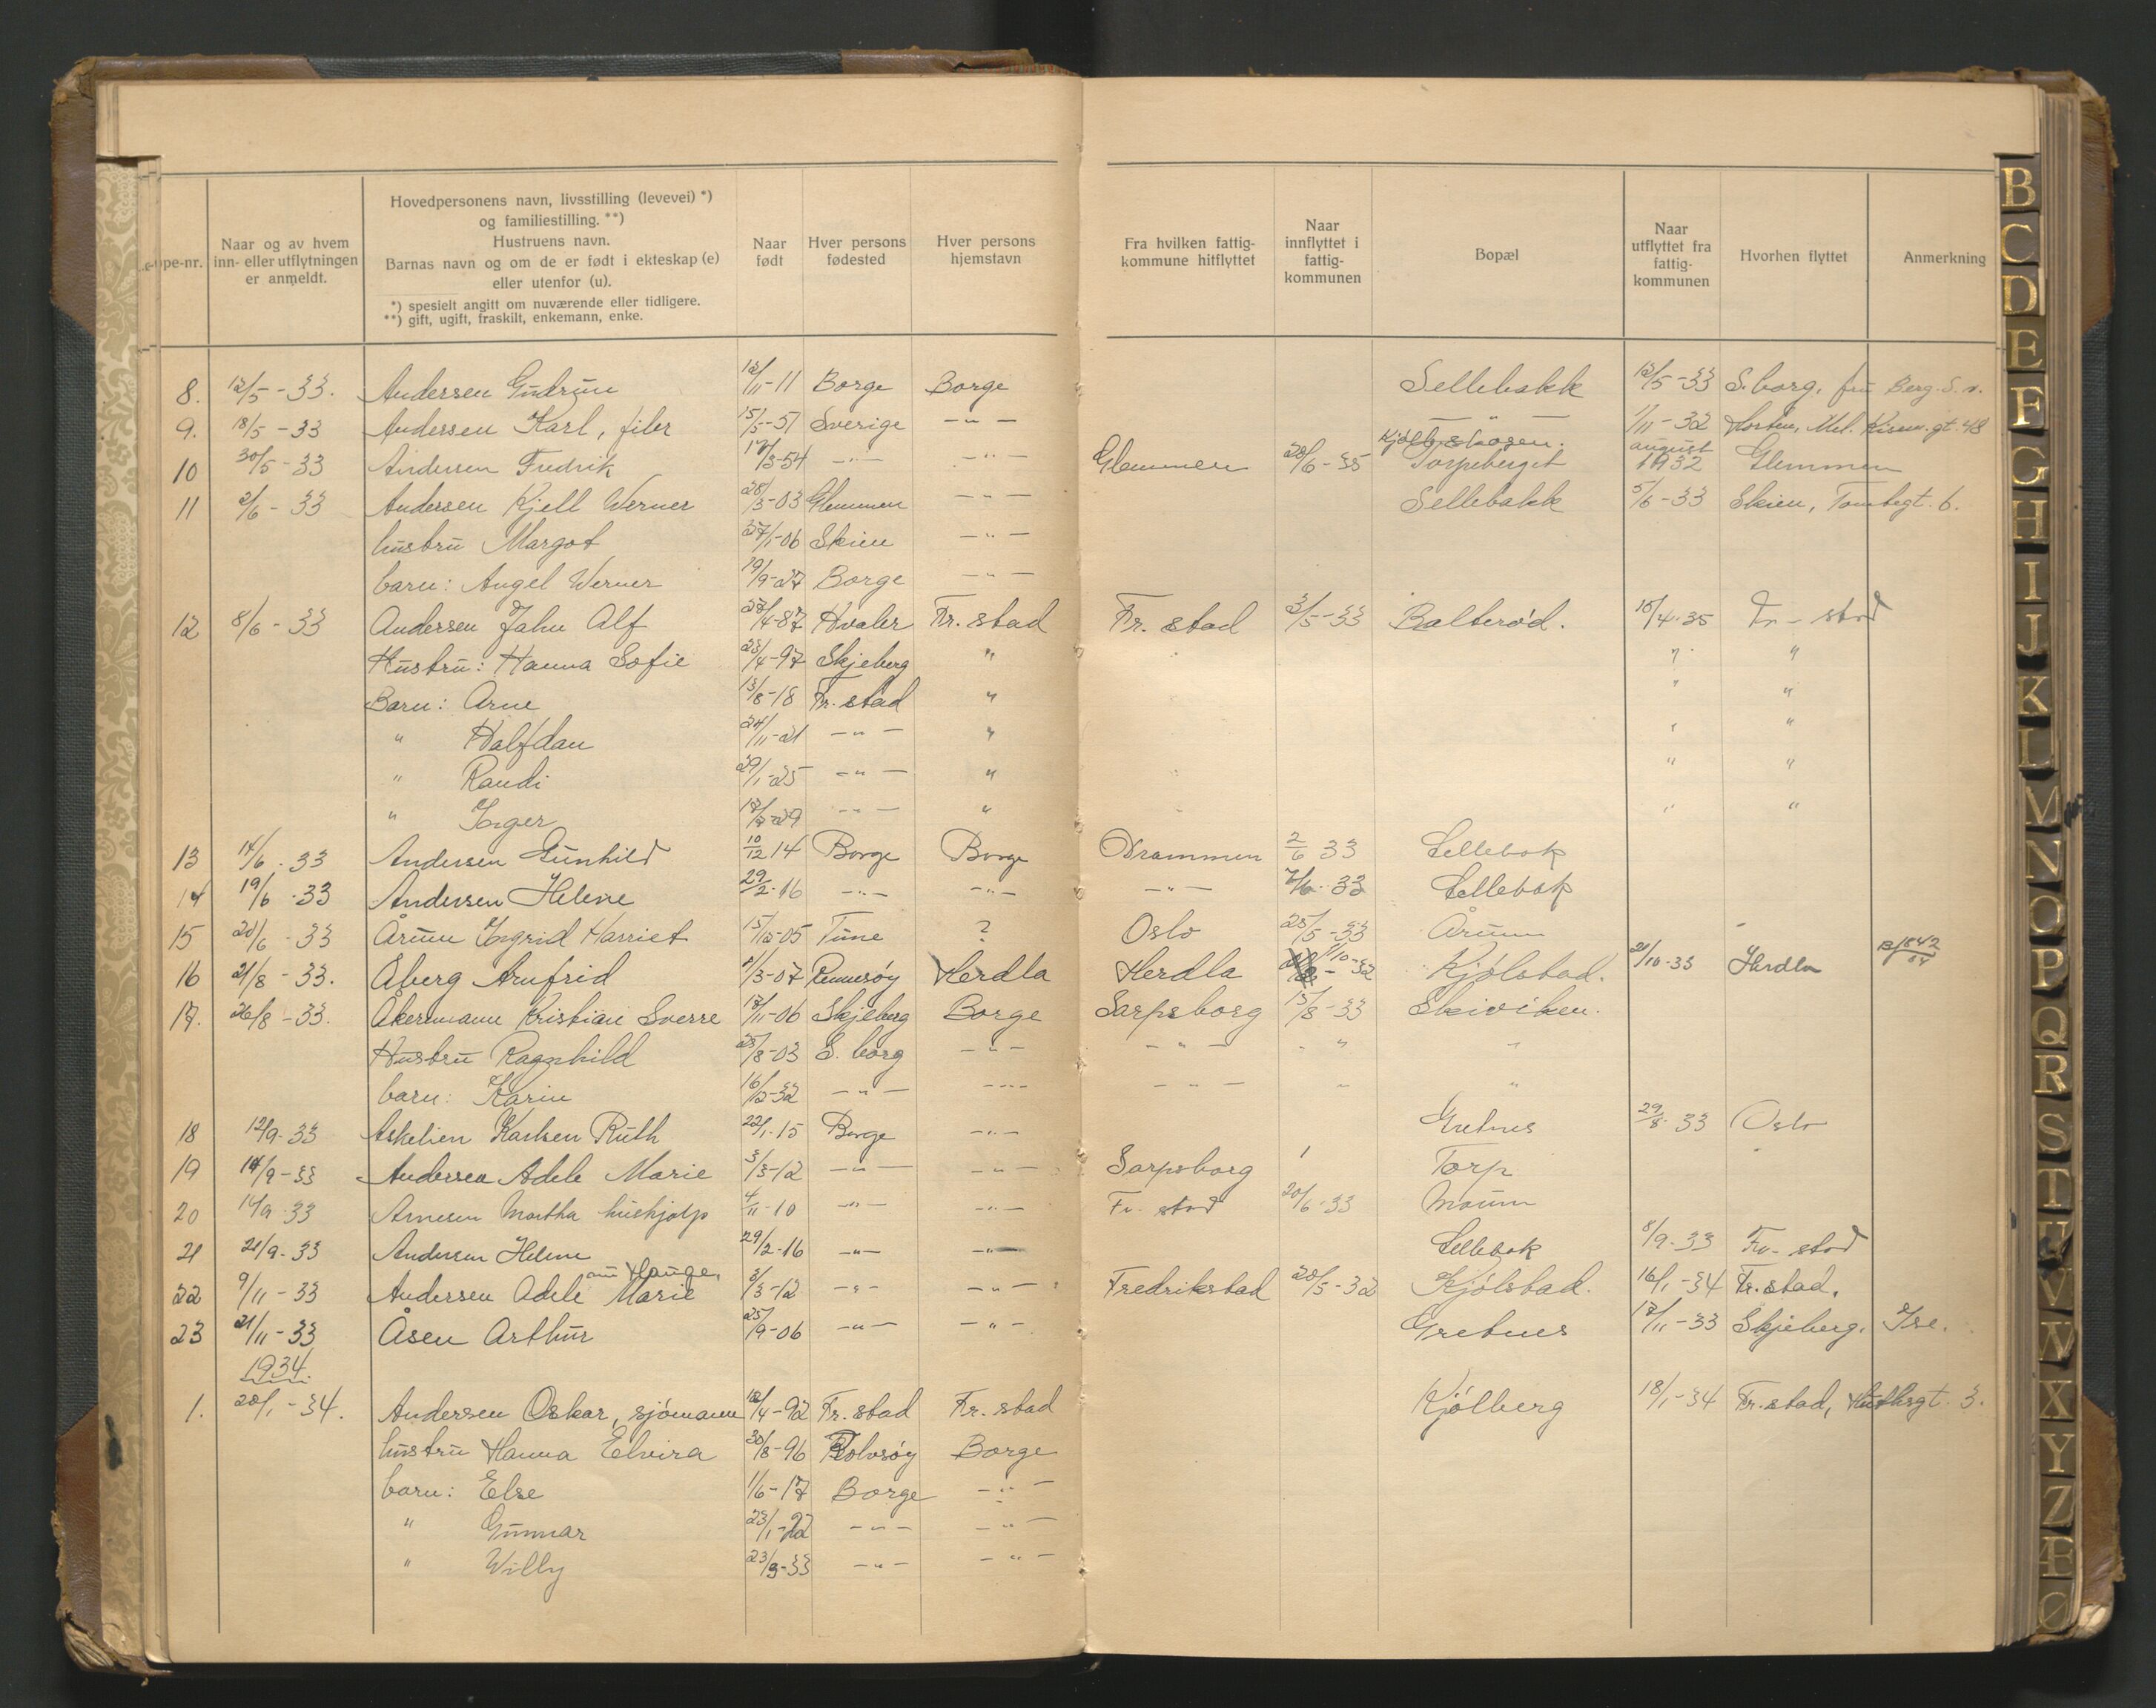 Løpe-nr.
Naar og av hvem inn- eller utflytningen er anmeldt.
Hovedpersonens navn, livsstilling (levevei) *) og familiestilling. **)
Hustruens navn.
Barnas navn og om de er født i ekteskap (e) eller utenfor (u).
*) spesielt angitt om nuværende eller tidligere.
**) gift, ugift, fraskilt, enkemann, enke.
Naar født
Hver persons fødested
Hver persons hjemstavn
Fra hvilken fattigkommune hitflyttet
Naar innflyttet i fattigkommunen
Bopæl
Naar utflyttet fra fattigkommunen
Hvorhen flyttet
Anmerkning
8. 12/5-33. Andersen Gudrun 12/11-11 Borge Borge Sellebakk 12/5-33 S.borg, fru Berg. S.v.
9. 18/5-33 Andersen Karl, filer 15/5-51 Sverige -"- -"- 1/11-32 Horten, Kisem.gt. 48
10 30/5-33 Andersen Fredrik 17/3-54 -"- -"- Glemmen 28/6-35 Torpeberget august 1932 Glemmen
11 2/6-33 Andersen Kjell Werner 28/3-03 Glemmen -"- Sellebakk 5/6-33 Skien, Tombegt. 6.
hustru Margot 27/1-06 Skien -"-
barn: Angel Werner 19/9-27 Borge -"-
12 8/6-33 Andersen Jahn Alf 27/4-87 Hvaler Fr. stad Fr. stad 3/5-33 Balterød. 10/4-35 Fr-stad
Hustru: Hanna Sofie 23/4-97 Skjeberg " " "
Barn: Arne 13/8-18 Fr. stad " " "
" Halfdan 24/11-21 -"- " " "
" Randi 29/1-25 -"- " " "
" Inger 17/7-29 -"- " " "
13 14/6-33 Andersen Gunhild 10/12 14 Borge Borge Drammen 2/6 33 Sellebak
14 19/6-33 Andersen Helene 29/2-16 -"- -"- -"- 2/6-33 Sellebak
15 20/6-33 Årum Ingrid Harriet 15/12-05 Tune ? Oslo 25/5-33 Årum
16 21/8-33. Åberg Arnfrid 2/3-07 Rennesøy Herdla Herdla 1/10-32 Kjølstad. 21/10-33 Herdla
17. 26/8-33. Åkermann Kristian Sverre 17/11-06 Skjeberg Borge Sarpsborg 15/8-33 Skiviken.
Hustru Ragnhild 25/8-03 S. borg -"- -"- -" "
barn: Karin 16/2-32 -"- -"- -"- " "
18 12/9-33 Askelien Karlsen Ruth 22/1-15 Borge -"- Gretnes 29/8-33 Oslo
19 14/9-33 Andersen Adele Marie 3/3-12 -"- -"- Sarpsborg Torp
20 14/9-33 Arnesen Martha hushjelp 4/11-10 -"- -"- Fr. stad 20/6-33 Moum
21 21/9-33 Andersen Helene 29/2-16 -"- -"- Sellebak 8/9-33 Fr-stad
nu Hauge,
22 9/11-33 Andersen Adele Marie 3/3-12 -"- -"- Fredrikstad 20/5-32 Kjølstad. 16/1-34 Fr.stad.
23 21/11-33 Åsen Arthur 25/9-06 -"- -"- Gretnes 17/11-33 Skjeberg, Ise.
1934.
1. 20/1-34. Andersen Oskar, sjømann 12/4-92 Fr. stad Fr. stad Kjølberg 18/1-34 Fr.stad, 3.
hustru Hanna Elvira 30/8-96 Rolvsøy Borge
barn: Else 1/6-17 Borge -"-
" Gunnar 23/1-22 -"- -"-
" Willy 23/9-33 -"- -"-
B
C
D
E
F
G
H
I
J
K
L
M
N
O
P
Q
R
S
T
U
V
W
X
Y
Z
Æ
Ø